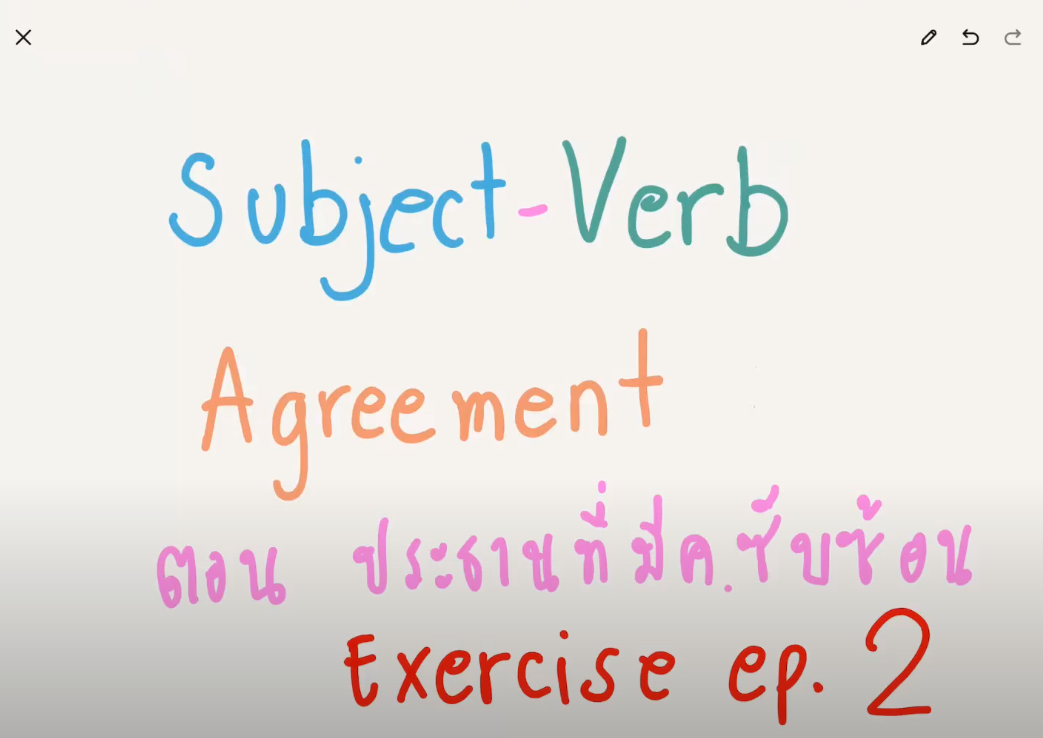 Subject-Verb
Agreement
ตอน ประธานที่มีค.ซับซ้อน
Exercise ep. 2